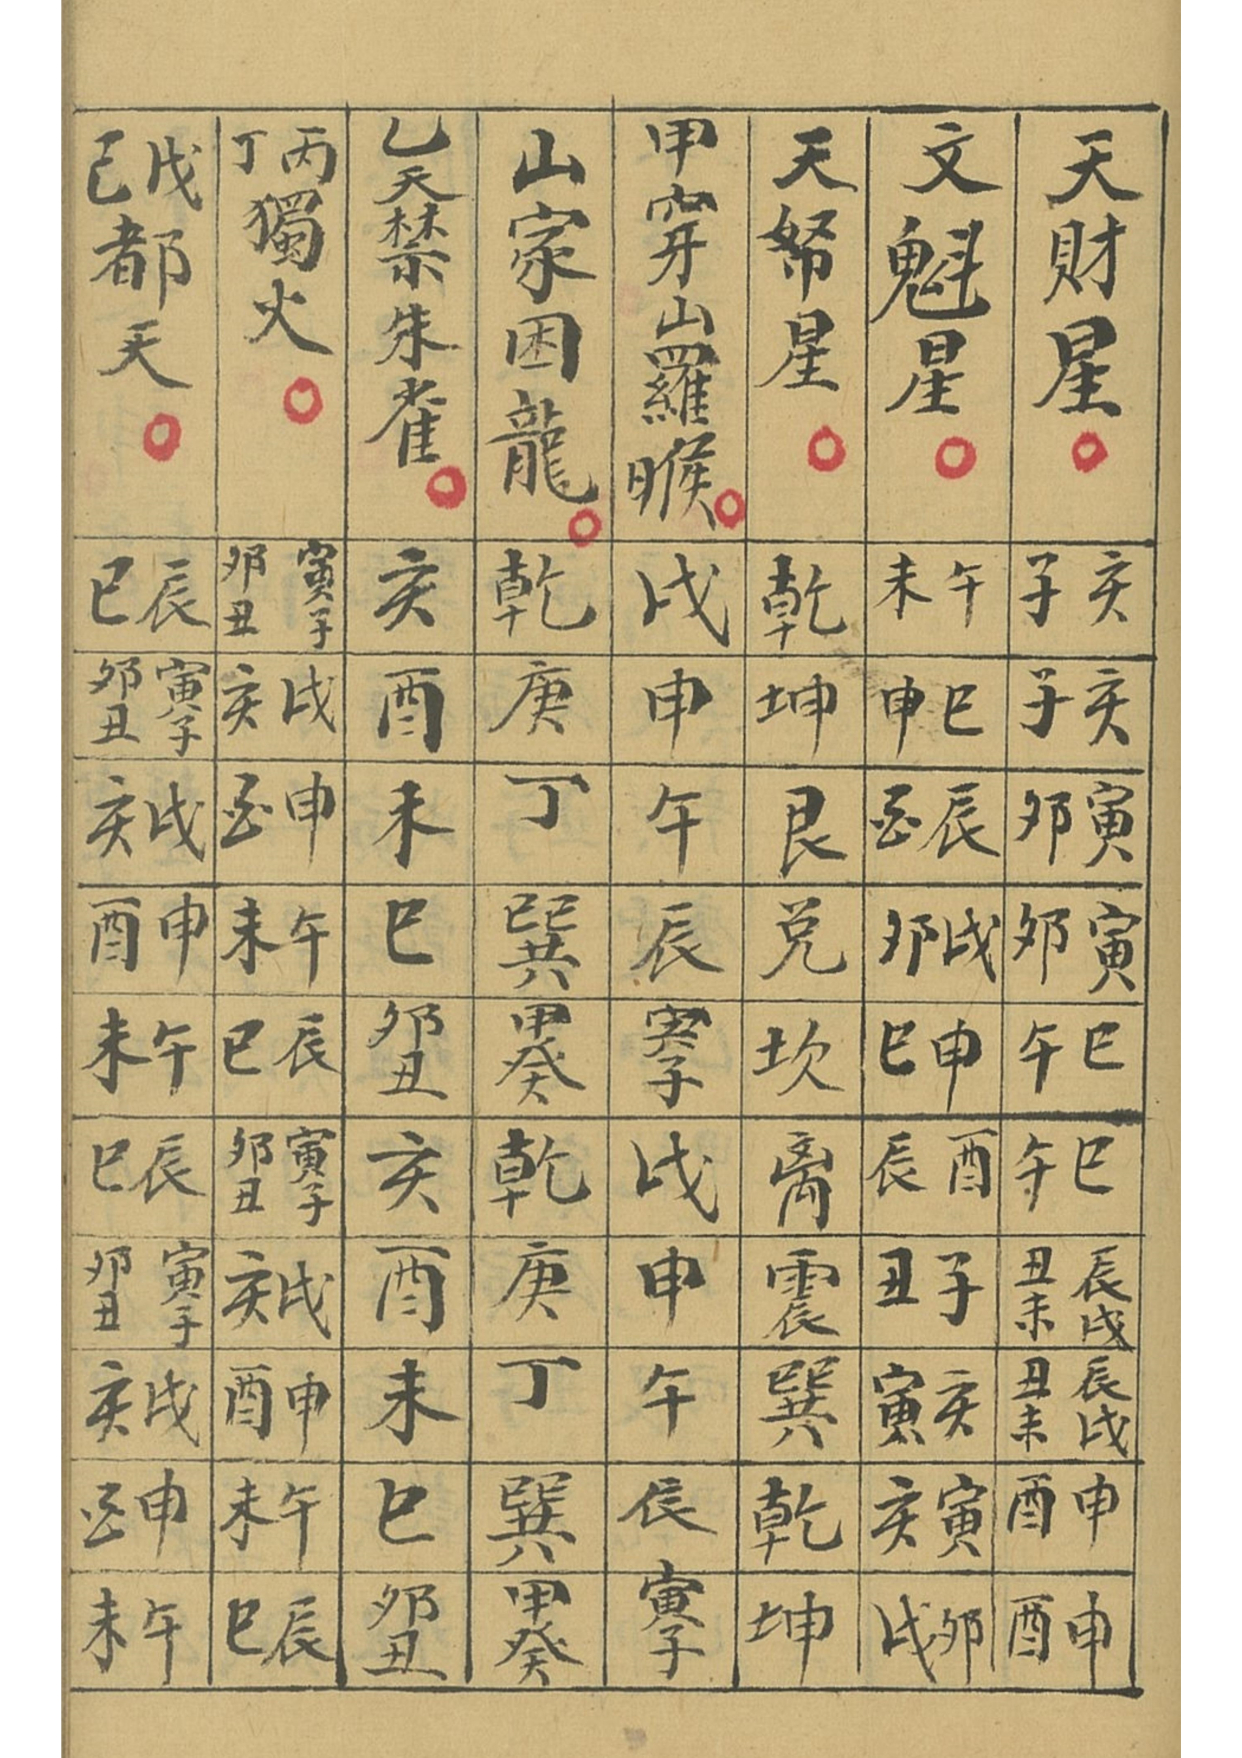 天財星
亥子
亥子
寅卯
寅卯
巳午
巳午
辰戌丑未
辰戌丑未
申酉
申酉
文魁星
午未
巳申
辰酉
戌卯
申巳
酉辰
子丑
亥寅
寅亥
卯戌
天帑星
乾
坤
艮
兌
坎
离
震
巽
乾
坤
甲穿山羅睺
戌
申
午
辰
寅子
戌
申
午
辰
寅子
山家困龍
乾
庚
丁
巽
甲癸
乾
庚
丁
巽
甲癸
乙天禁朱雀
亥
酉
未
巳
卯丑
亥
酉
未
巳
卯丑
丙丁獨火
寅子卯丑
戌亥
申酉
午未
辰巳
寅子卯丑
戌亥
申酉
午未
辰巳
戊己都天
辰巳
寅子卯丑
戌亥
申酉
午未
辰巳
寅子卯丑
戌亥
申酉
午未